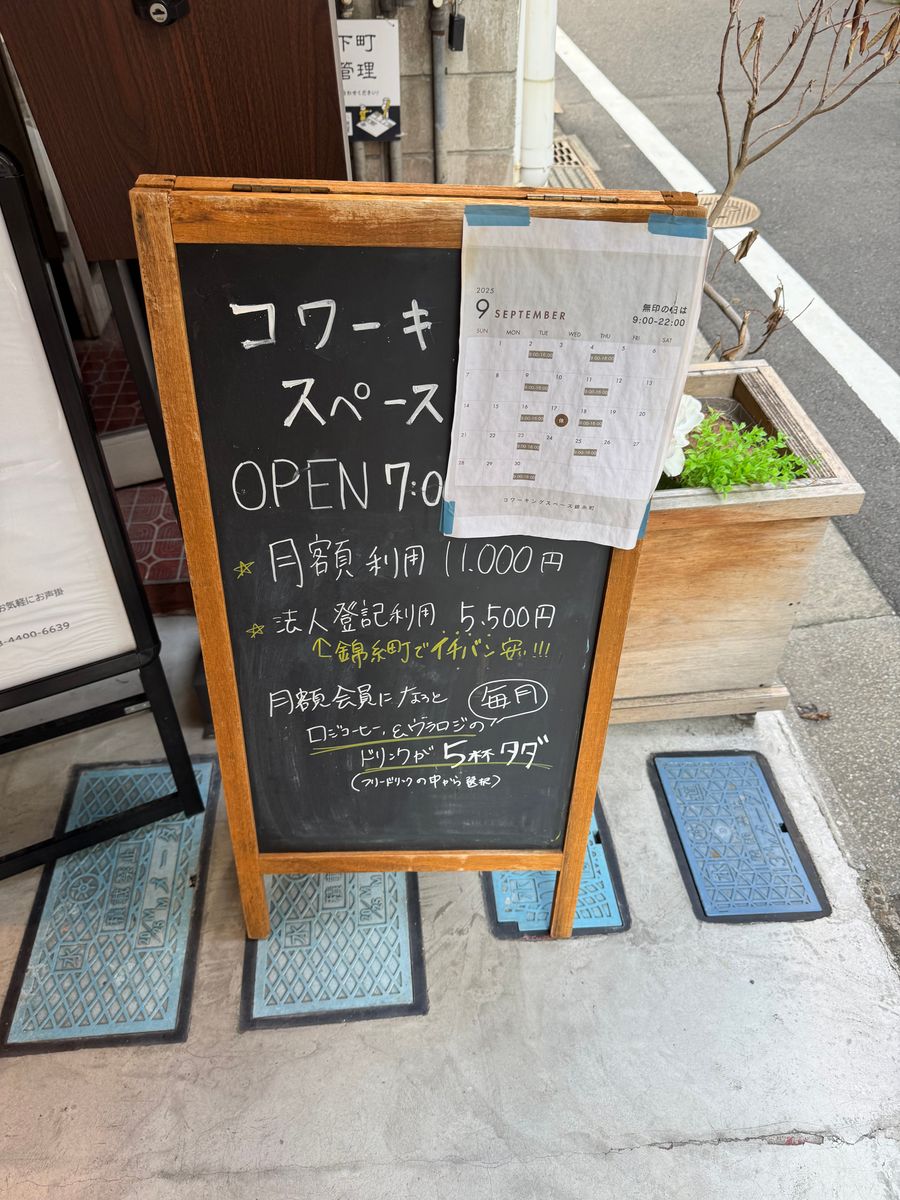 下町
管理
コワーキ
スペース
OPEN 7:0
☆月額利用 11.000円
☆法人登記利用 5,500円
↑錦糸町でイチバン安い!!!
月額会員になると 毎月
ロジコーヒー,&ヴラロジの
ドリンクが 5杯タダ
(フリードリンクの中から選択)
2025
9 SEPTEMBER
無印の日は
9:00-22:00
SUN MON TUE WED THU FRI SAT
1 2 3 4 5 6
9:00-18:00 9:00-18:00
7 8 9 10 11 12 13
9:00-18:00 9:00-18:00
14 15 16 17 18 19 20
9:00-18:00 休 9:00-18:00
21 22 23 24 25 26 27
9:00-18:00 9:00-18:00
28 29 30
9:00-18:00
コワーキングスペース錦糸町
お気軽にお声掛
3-4400-6639